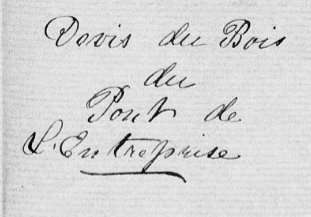 Devis du Bois
du
Pont de
L'Entreprise